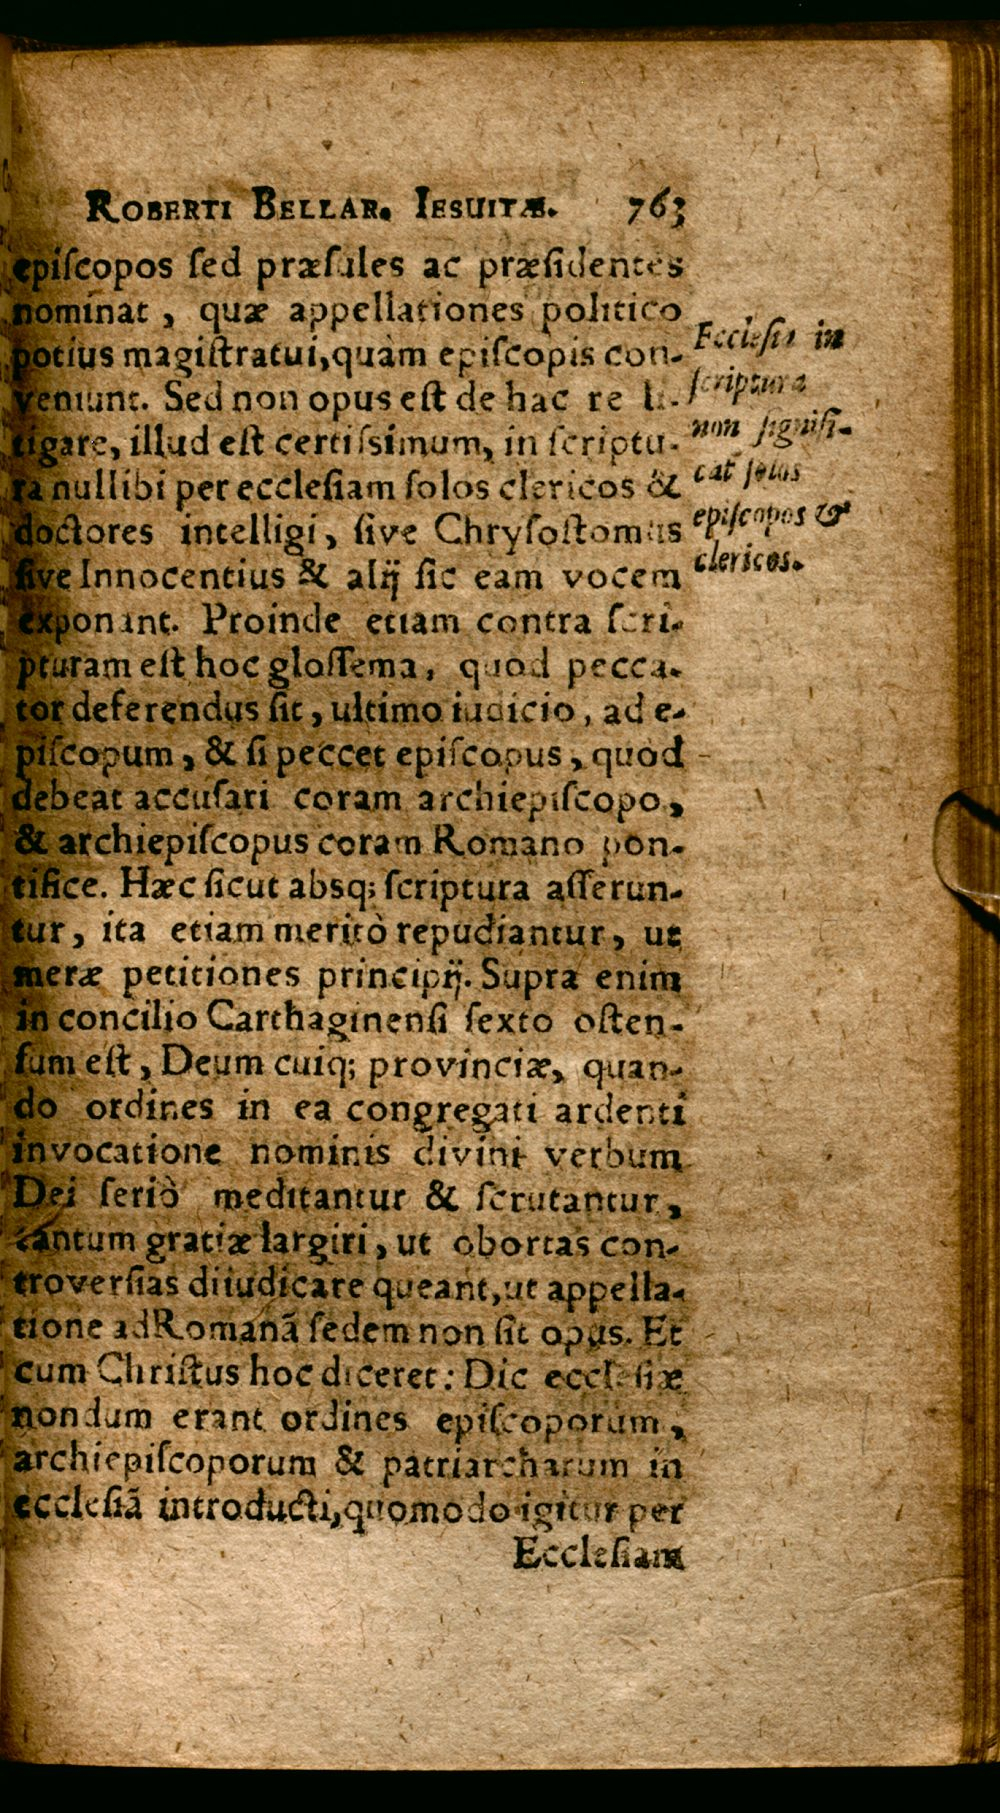 ROBERTI BELLAR. IESUITÆ. 763
epiſcopos ſed præſules ac præſidentes
nominat, quæ appellationes politico
potius magiſtratui, quàm epiſcopis con-
veniunt. Sed non opus eſt de hac re li-
tigare, illud eſt certiſsimum, in ſcriptu-
ra nullibi per eccleſiam ſolos clericos &
doctores intelligi, ſive Chryſoſtomus
ſive Innocentius & alij ſic eam vocem
exponant. Proinde etiam contra ſcri-
pturam eſt hoc gloſſema, quod pecca-
tor deferendus ſit, ultimo iudicio, ad e-
piſcopum, & ſi peccet epiſcopus, quòd
debeat accuſari coram archiepiſcopo,
& archiepiſcopus coram Romano pon-
tifice. Hæc ſicut absq; ſcriptura aſſerun-
tur, ita etiam meritò repudiantur, ut
meræ petitiones principij. Supra enim
in concilio Carthaginenſi ſexto oſten-
ſum eſt, Deum cuiq; provinciæ, quan-
do ordines in ea congregati ardenti
invocatione nominis divini verbum
Dei ſeriò meditantur & ſcrutantur,
tantum gratiæ largiri, ut obortas con-
troverſias diiudicare queant, ut appella-
tione ad Romanã ſedem non ſit opus. Et
cum Chriſtus hoc diceret: Dic eccleſiæ
nondum erant ordines epiſcoporum,
archiepiſcoporum & patriarcharum in
eccleſiã introducti, quomodo igitur per
Eccleſiam
Eccleſia in
ſcriptura
non ſignifi-
cat ſolos
epiſcopos &
clericos.